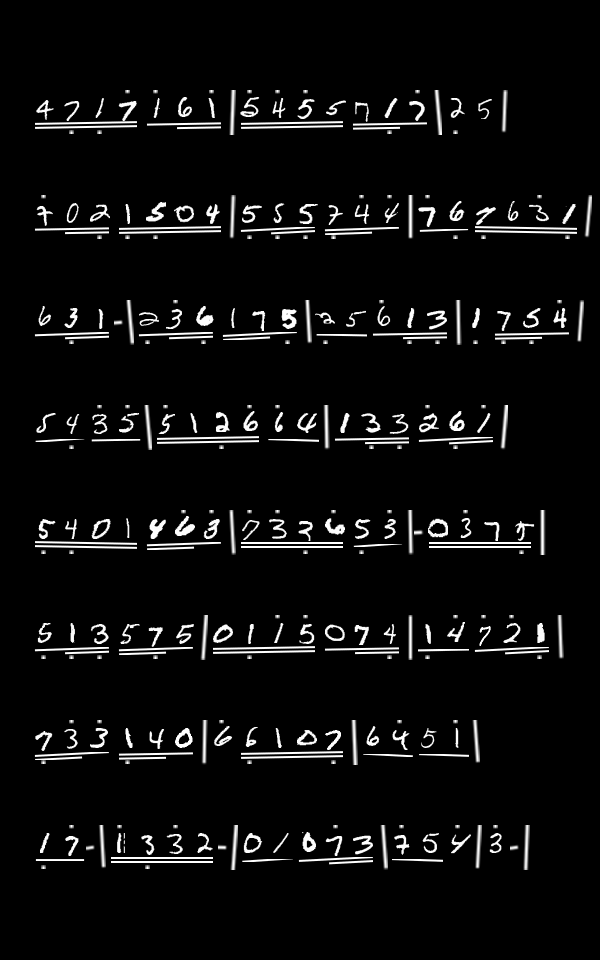 4717 161|5455 717|25|
702 1504|555 744|76 7631|
631-|236 175|25 613|1 754|
5435|5126 64|133 261|
5401 463|7336 53|-0375|
513 575|0115 074|14 721|
733 140|6 6107|64 51|
17-|1332-|01 073|754|3-|